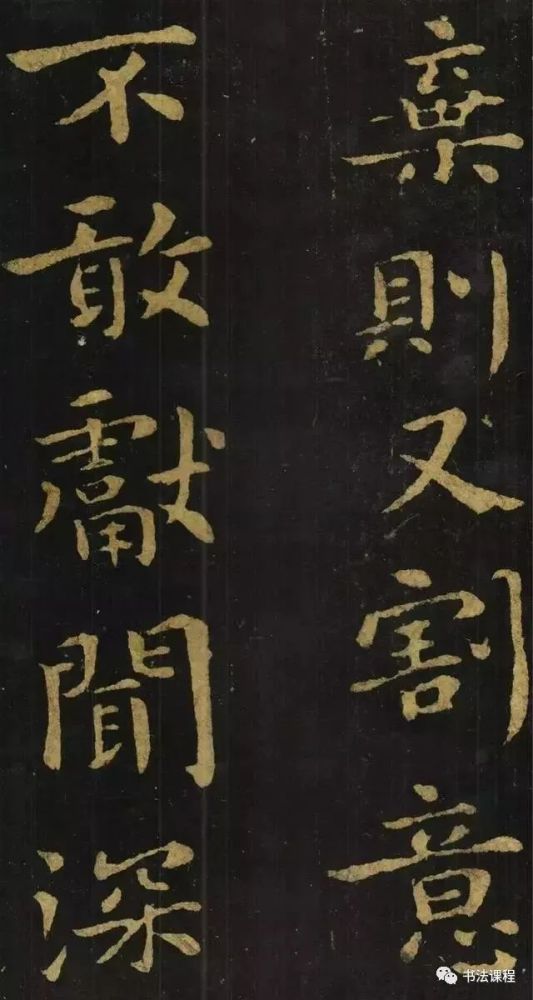 棄則又割意
不敢獻聞深
书法课程